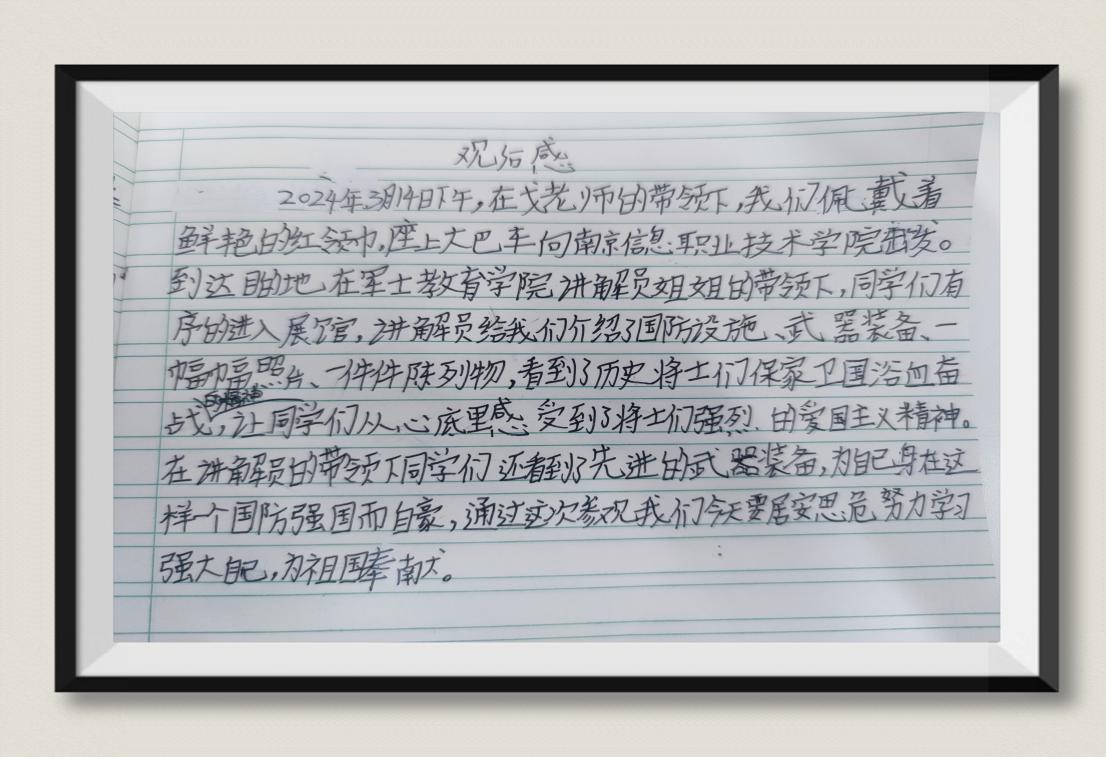 观后感
2024年3月14日下午，在戈老师的带领下，我们佩戴着
鲜艳的红领巾，座上大巴车向南京信息职业技术学院出发。
到达目的地，在军士教育学院讲解员姐姐的带领下，同学们有
序的进入展馆，讲解员给我们介绍了国防设施、武器装备、一
幅幅照片、一件件陈列物，看到了历史将士们保家卫国浴血奋
战，让同学们从心底里感受到了将士们强烈的爱国主义精神。
在讲解员的带领下同学们还看到了先进的武器装备，为自己身在这
样一个国防强国而自豪，通过这次参观我们今天要居安思危努力学习
强大自己，为祖国奉献。